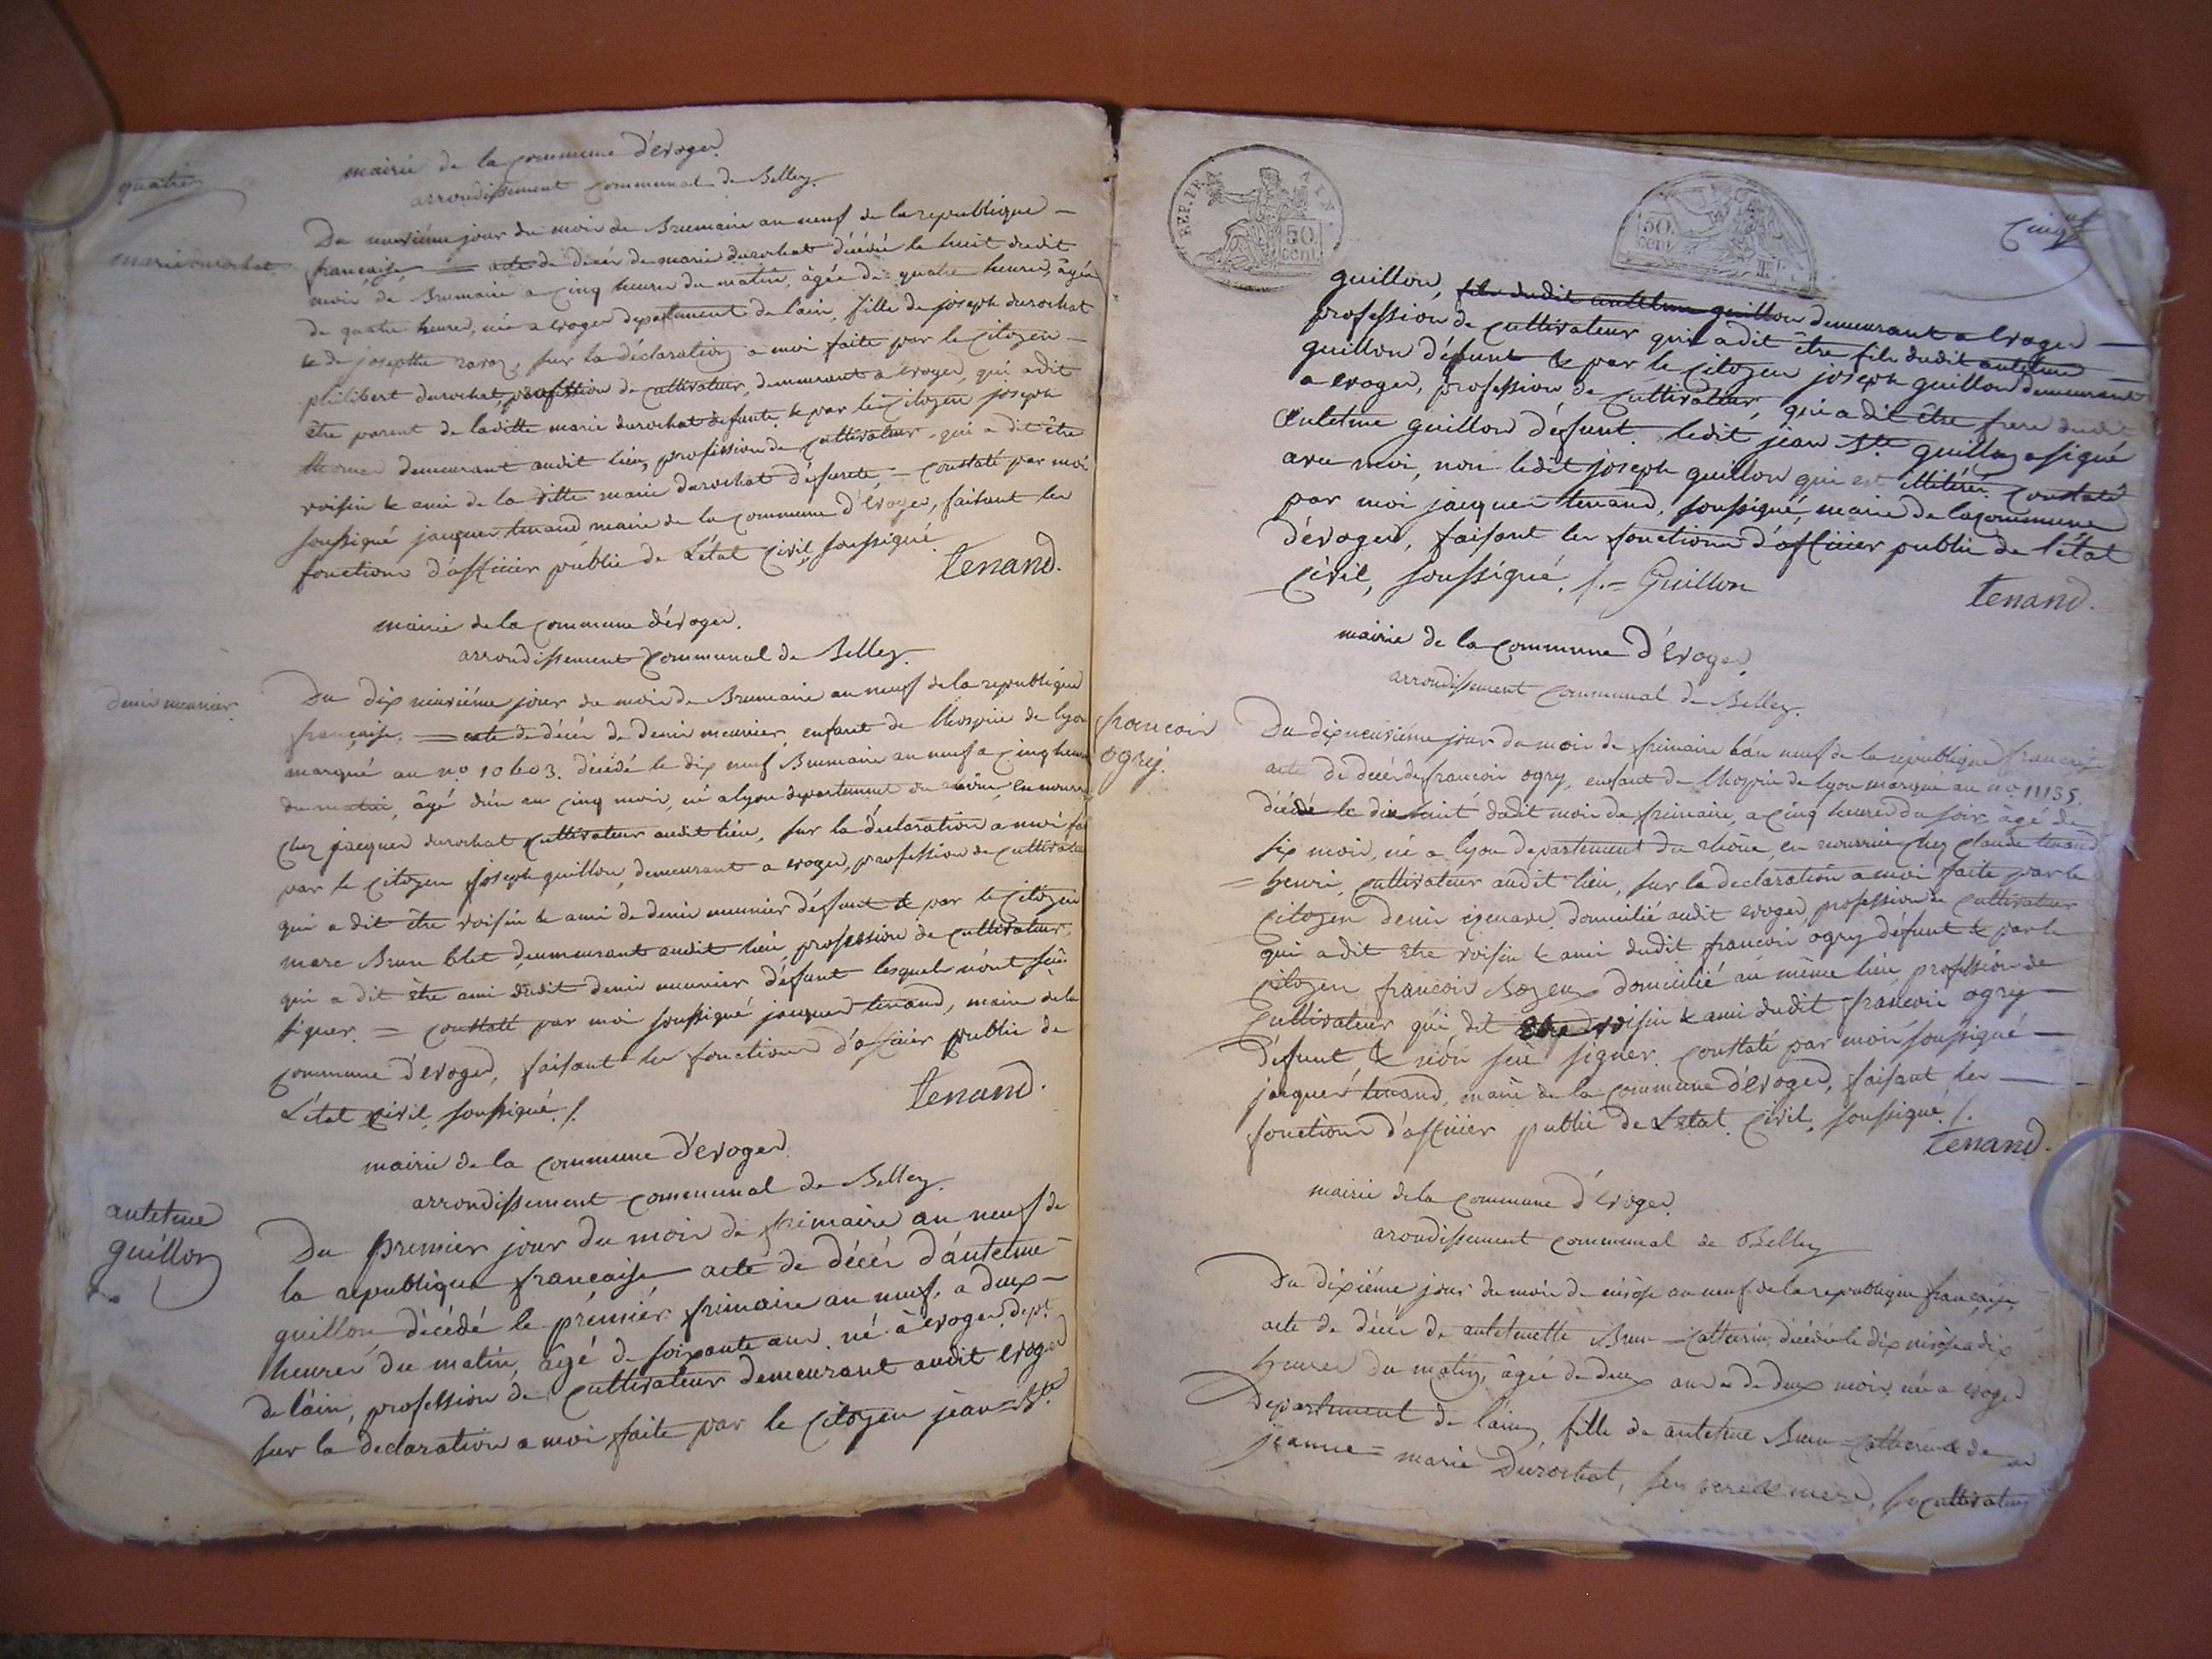 quatre
mairie de la commune d'évoges
arrondissement communal de Belley.
marie durochat
Du neuviéme jour du mois de Brumaire an neuf de la republique —
française = acte de décès de marie durochat décédée le huit dudit
mois de Brumaire a cinq heures du matin, âgée de quatre heures, âgée
de quatre heures, née a evoges departement de l'ain, fille de joseph durochat
& de josephte ravoz, sur la déclaration a moi faite par le citoyen —
philibert durochat, profession de cultivateur, demeurant a evoges, qui a dit
être parent de laditte marie durochat defunte & par le citoyen joseph
demeurant audit lieu, profession de cultivateur, qui a dit être
voisin & ami de la ditte marie durochat défunte, = constaté par moi
soussigné jacques tenand maire de la commune d'évoges, faisant les
fonctions d'officier public de L'état civil, soussigné.
tenand.
mairie de la commune d'évoges.
arrondissement communal de Belley.
denis meunier.
Du dix neuviéme jour du mois de Brumaire an neuf de la republique
française, = acte de décès de denis meunier, enfant de l'hospice de lyon
marqué au no 10603. décédé le dix neuf Brumaire an neuf a cinq heures
du matin, âgé d'un an cinq mois, né a lyon departement du rhône, en nourrice
chez jacques durochat cultivateur audit lieu, sur la déclaration a moi fai
par le citoyen joseph guillon, demeurant a evoges, profession de cultivateur
qui a dit être voisin & ami de denis meunier défunt & par le citoyen
marc Brun blet demeurant audit lieu profession de cultivateur,
qui a dit être ami dudit denis meunier défunt lesquels n'ont sçû
signer. = constaté par moi soussigné jacques tenand, maire de la
commune d'évoges, faisant les fonctions d'officier public de
L'état civil, soussigné ./.
tenand.
mairie de la commune d'évoges
arrondissement communal de Belley.
antelme
guillon
Du premier jour du mois de frimaire an neuf de
la republique française acte de décès d'antelme
guillon décédé le prémiér frimaire an neuf, a deux —
heures du matin, âgé de soixante ans, né à évoges, dept
de l'ain, profession de cultivateur demeurant audit evoges
sur la declaration a moi faite par le citoyen jean Bte
REP. FRA
50. cent.
50. cent.
cinq
guillon, fils dudit antelme guillon demeurant a evoges —
profession de cultivateur qui a dit être fils dudit antelme —
guillon défunt & par le citoyen joseph guillon demeurant
a evoges, profession de cultivateur, qui a dit être frere dudit
antelme guillon défunt. ledit jean Bte guillon a signé
avec moi, non ledit joseph guillon qui est illitéré. constaté
par moi jacques tenand, soussigné, maire de la commune
d'évoges, faisant les fonctions d'officier public de l'état
civil, soussigné. /. = Guillon
tenand.
mairie de la commune d'évoges
arrondissement communal de Belley.
francois
ogry.
Du dix neuviéme jour du mois de frimaire l'an neuf de la republique francaise
acte de décès de francois ogry, enfant de l'hospice de lyon marqué au no 11135.
décédé le dix huit dudit mois de frimaire, a cinq heures du soir, âgé de
six mois, né a lyon departement du rhône, en nourrice chez claude tenand
= henri, cultivateur audit lieu, sur la declaration a moi faite par le
citoyen denis domicilié audit evoges, profession de cultivateur
qui a dit être voisin & ami dudit francois ogry défunt & par le
citoyen francois Bozeux domicilié au même lieu, profession de
cultivateur qui dit être voisin & ami dudit francois ogry —
défunt, & n'ón seû signer. constaté par moi soussigné —
jacques tenand, maire de la commune d'évoges, faisant les —
fonctions d'officier public de L'état civil, soussigné. /.
tenand.
mairie de la commune d'évoges
arondissement communal de Belley
Du dixiéme jour du mois de nivôse an neuf de la republique française,
acte de décès de antelmette Brun = catherin, décédée le dix nivôse a dix
heures du matin, âgée de deux ans & de deux mois, née a evoges
departement de l'ain, fille de antelme Brun = catherin & de
jeanne = marie Durochat, ses pere & mere, cultivateurs